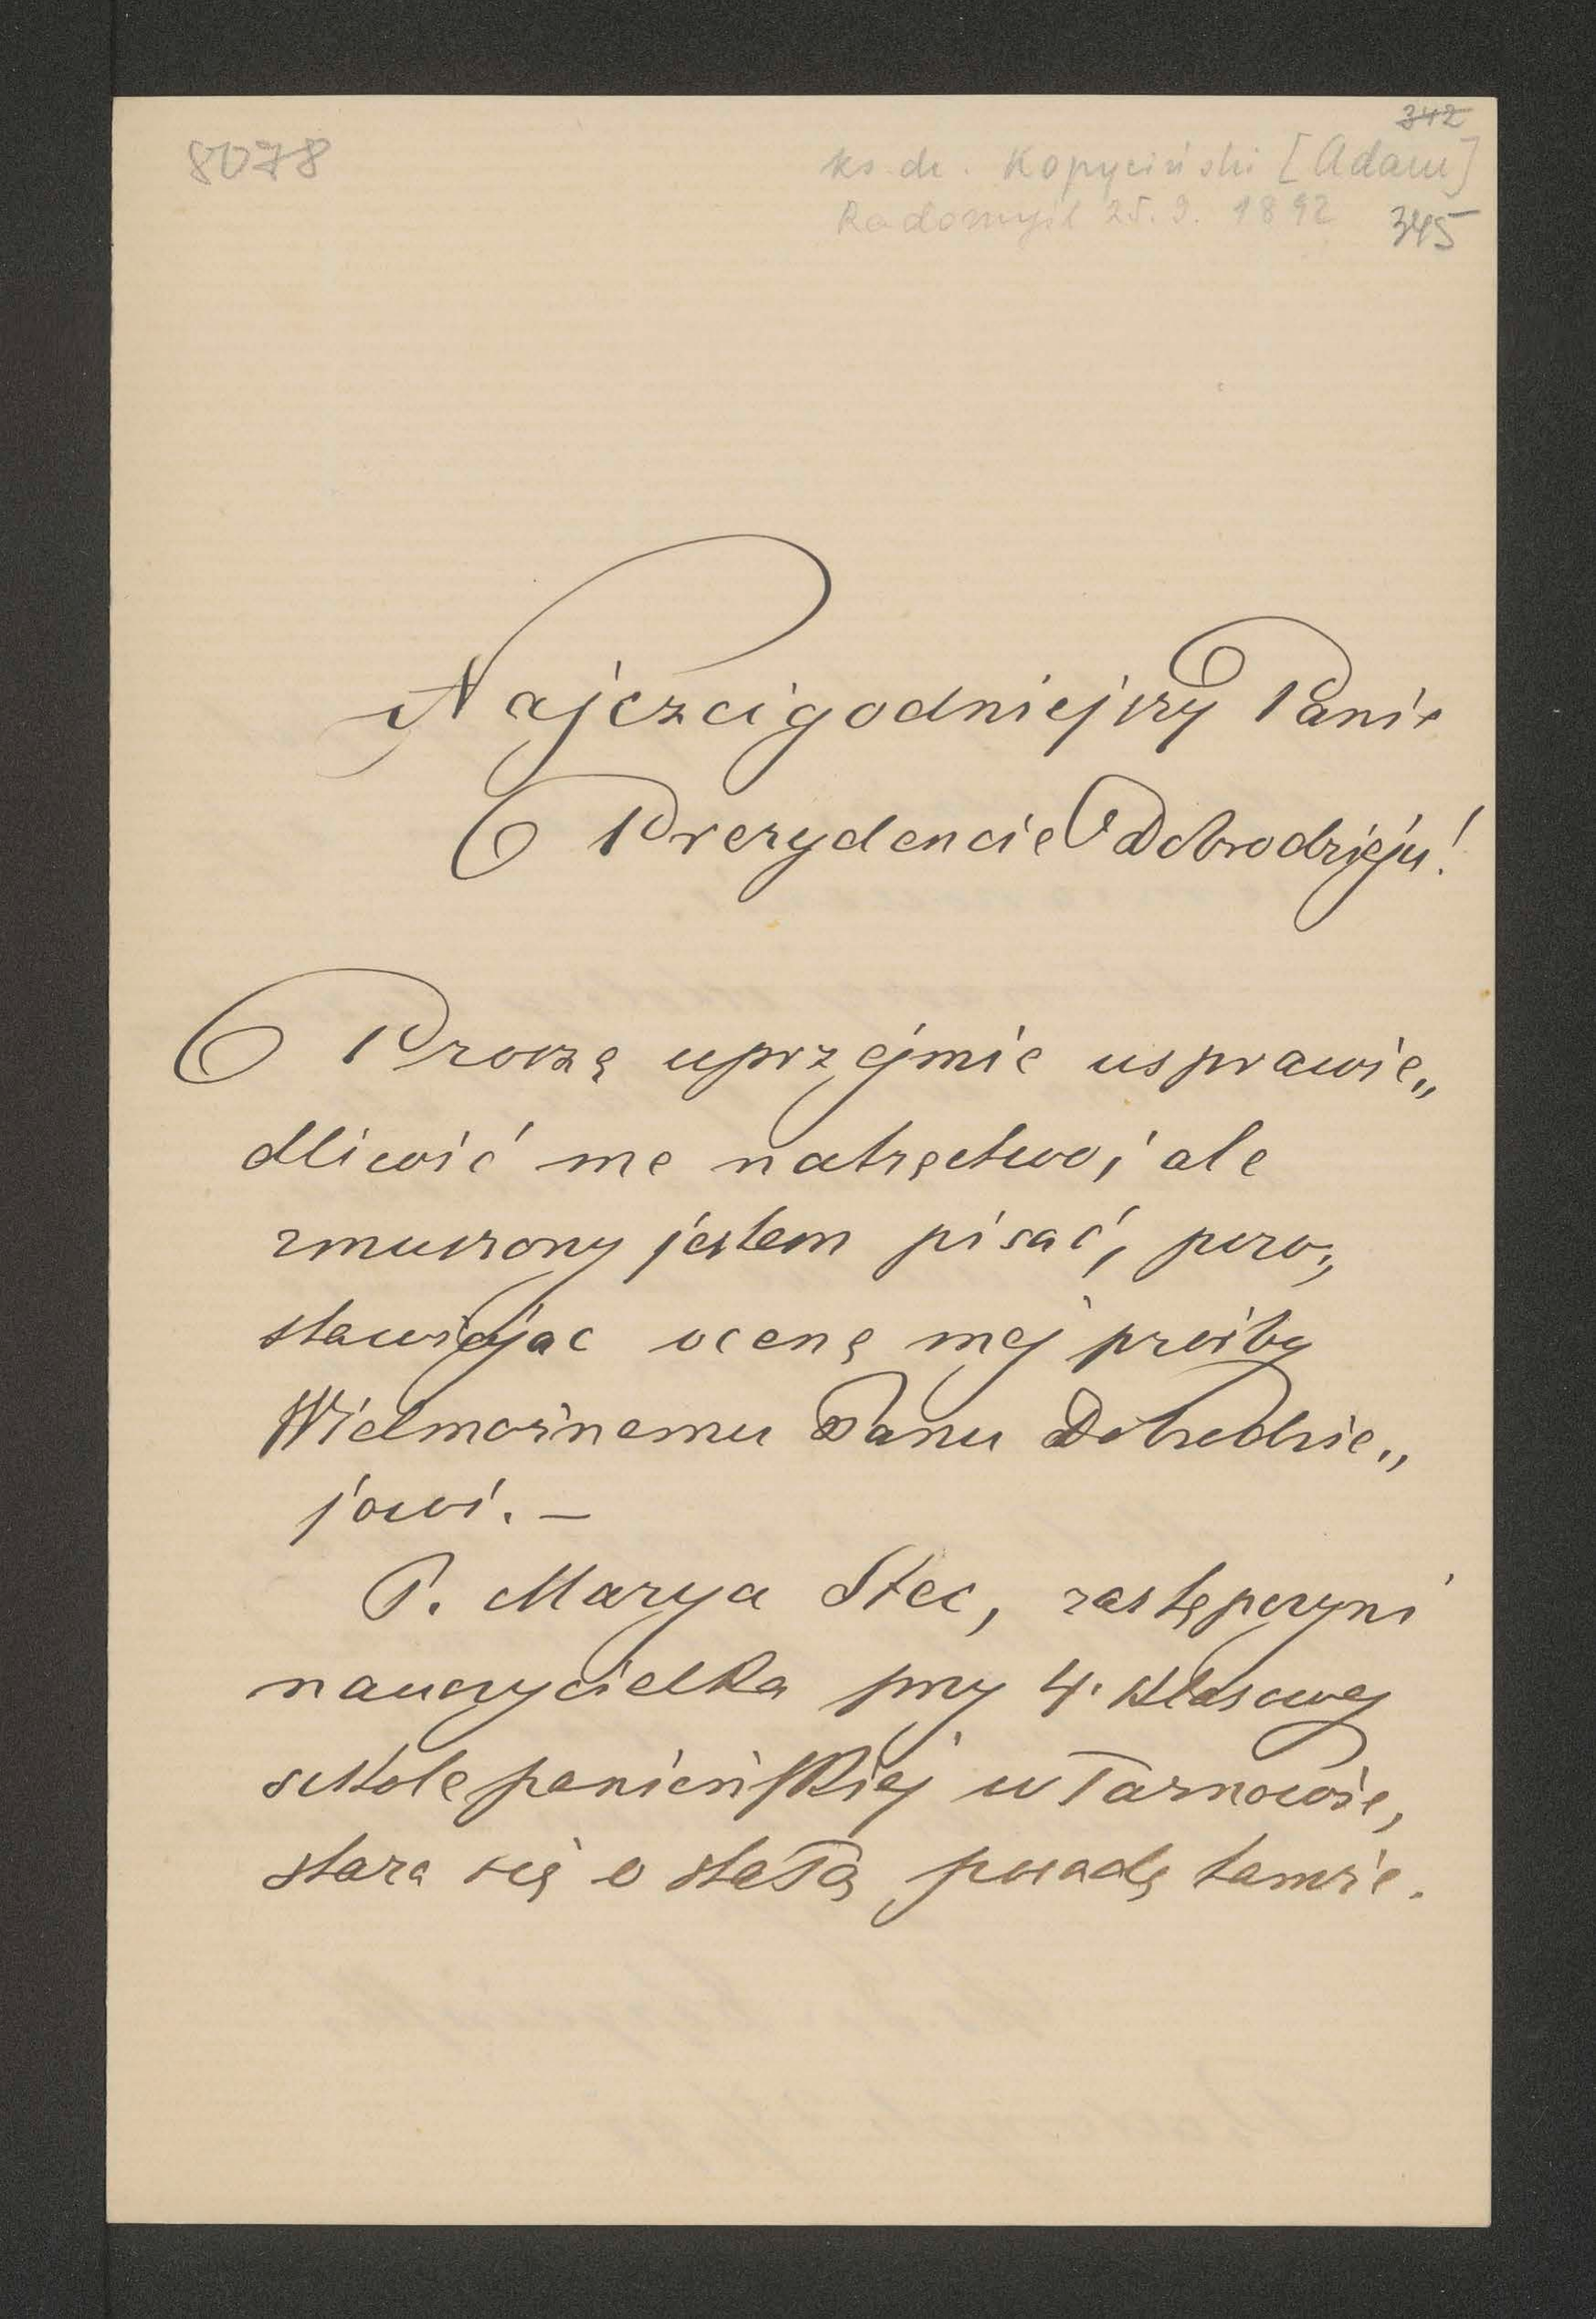 342
8078
ks. dr. Kopyciński [Adam]
Radomyśl 25. 9. 1892 345
Najczcigodniejszy Panie
Prezydencie Dobrodzieju!
Proszę uprzejmie usprawie„
dliwić me natręctwo, ale
zmuszony jestem pisać, pozo„
stawiając ocenę mej prośby
Wielmożnemu Panu Dobrodzie„
jowi. —
P. Marya Stec, zastępczyni
nauczycielka przy 4. klasowej
szkole panieńskiej w Tarnowie,
stara się o stałą posadę tamże.